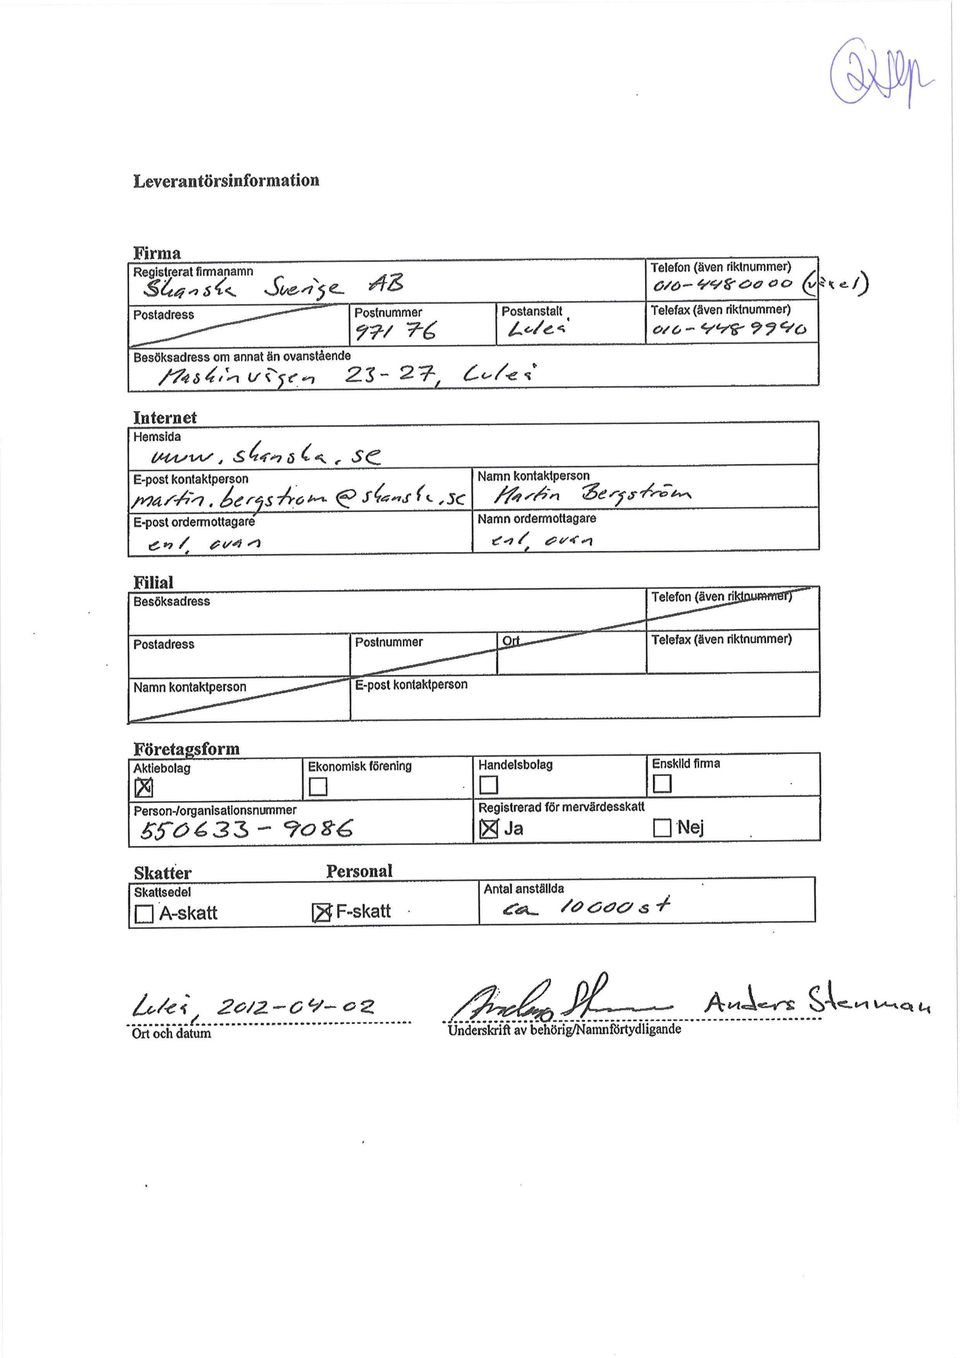 Leverantörsinformation
Firma
Registrerat firmanamn
Skanska Sverige AB
Telefon (även riktnummer)
010-4480000 (växel)
Postadress
Postnummer
971 76
Postanstalt
Luleå
Telefax (även riktnummer)
010-448 9940
Besöksadress om annat än ovanstående
Maskinvägen 23-27, Luleå
Internet
Hemsida
www.skanska.se
E-post kontaktperson
martin.bergstrom@skanska.se
Namn kontaktperson
Martin Bergström
E-post ordermottagare
enl, ovan
Namn ordermottagare
enl, ovan
Filial
Besöksadress
Telefon (även riktnummer)
Postadress
Postnummer
Ort
Telefax (även riktnummer)
Namn kontaktperson
E-post kontaktperson
Företagsform
Aktiebolag
Ekonomisk förening
Handelsbolag
Enskild firma
Person-/organisationsnummer
550633-9086
Registrerad för mervärdesskatt
Ja
Nej
Skatter
Personal
Skattsedel
A-skatt
F-skatt
Antal anställda
ca 10000 st
Luleå, 2012-04-02
Anders Stenman
Ort och datum
Underskrift av behörig/Namnförtydligande